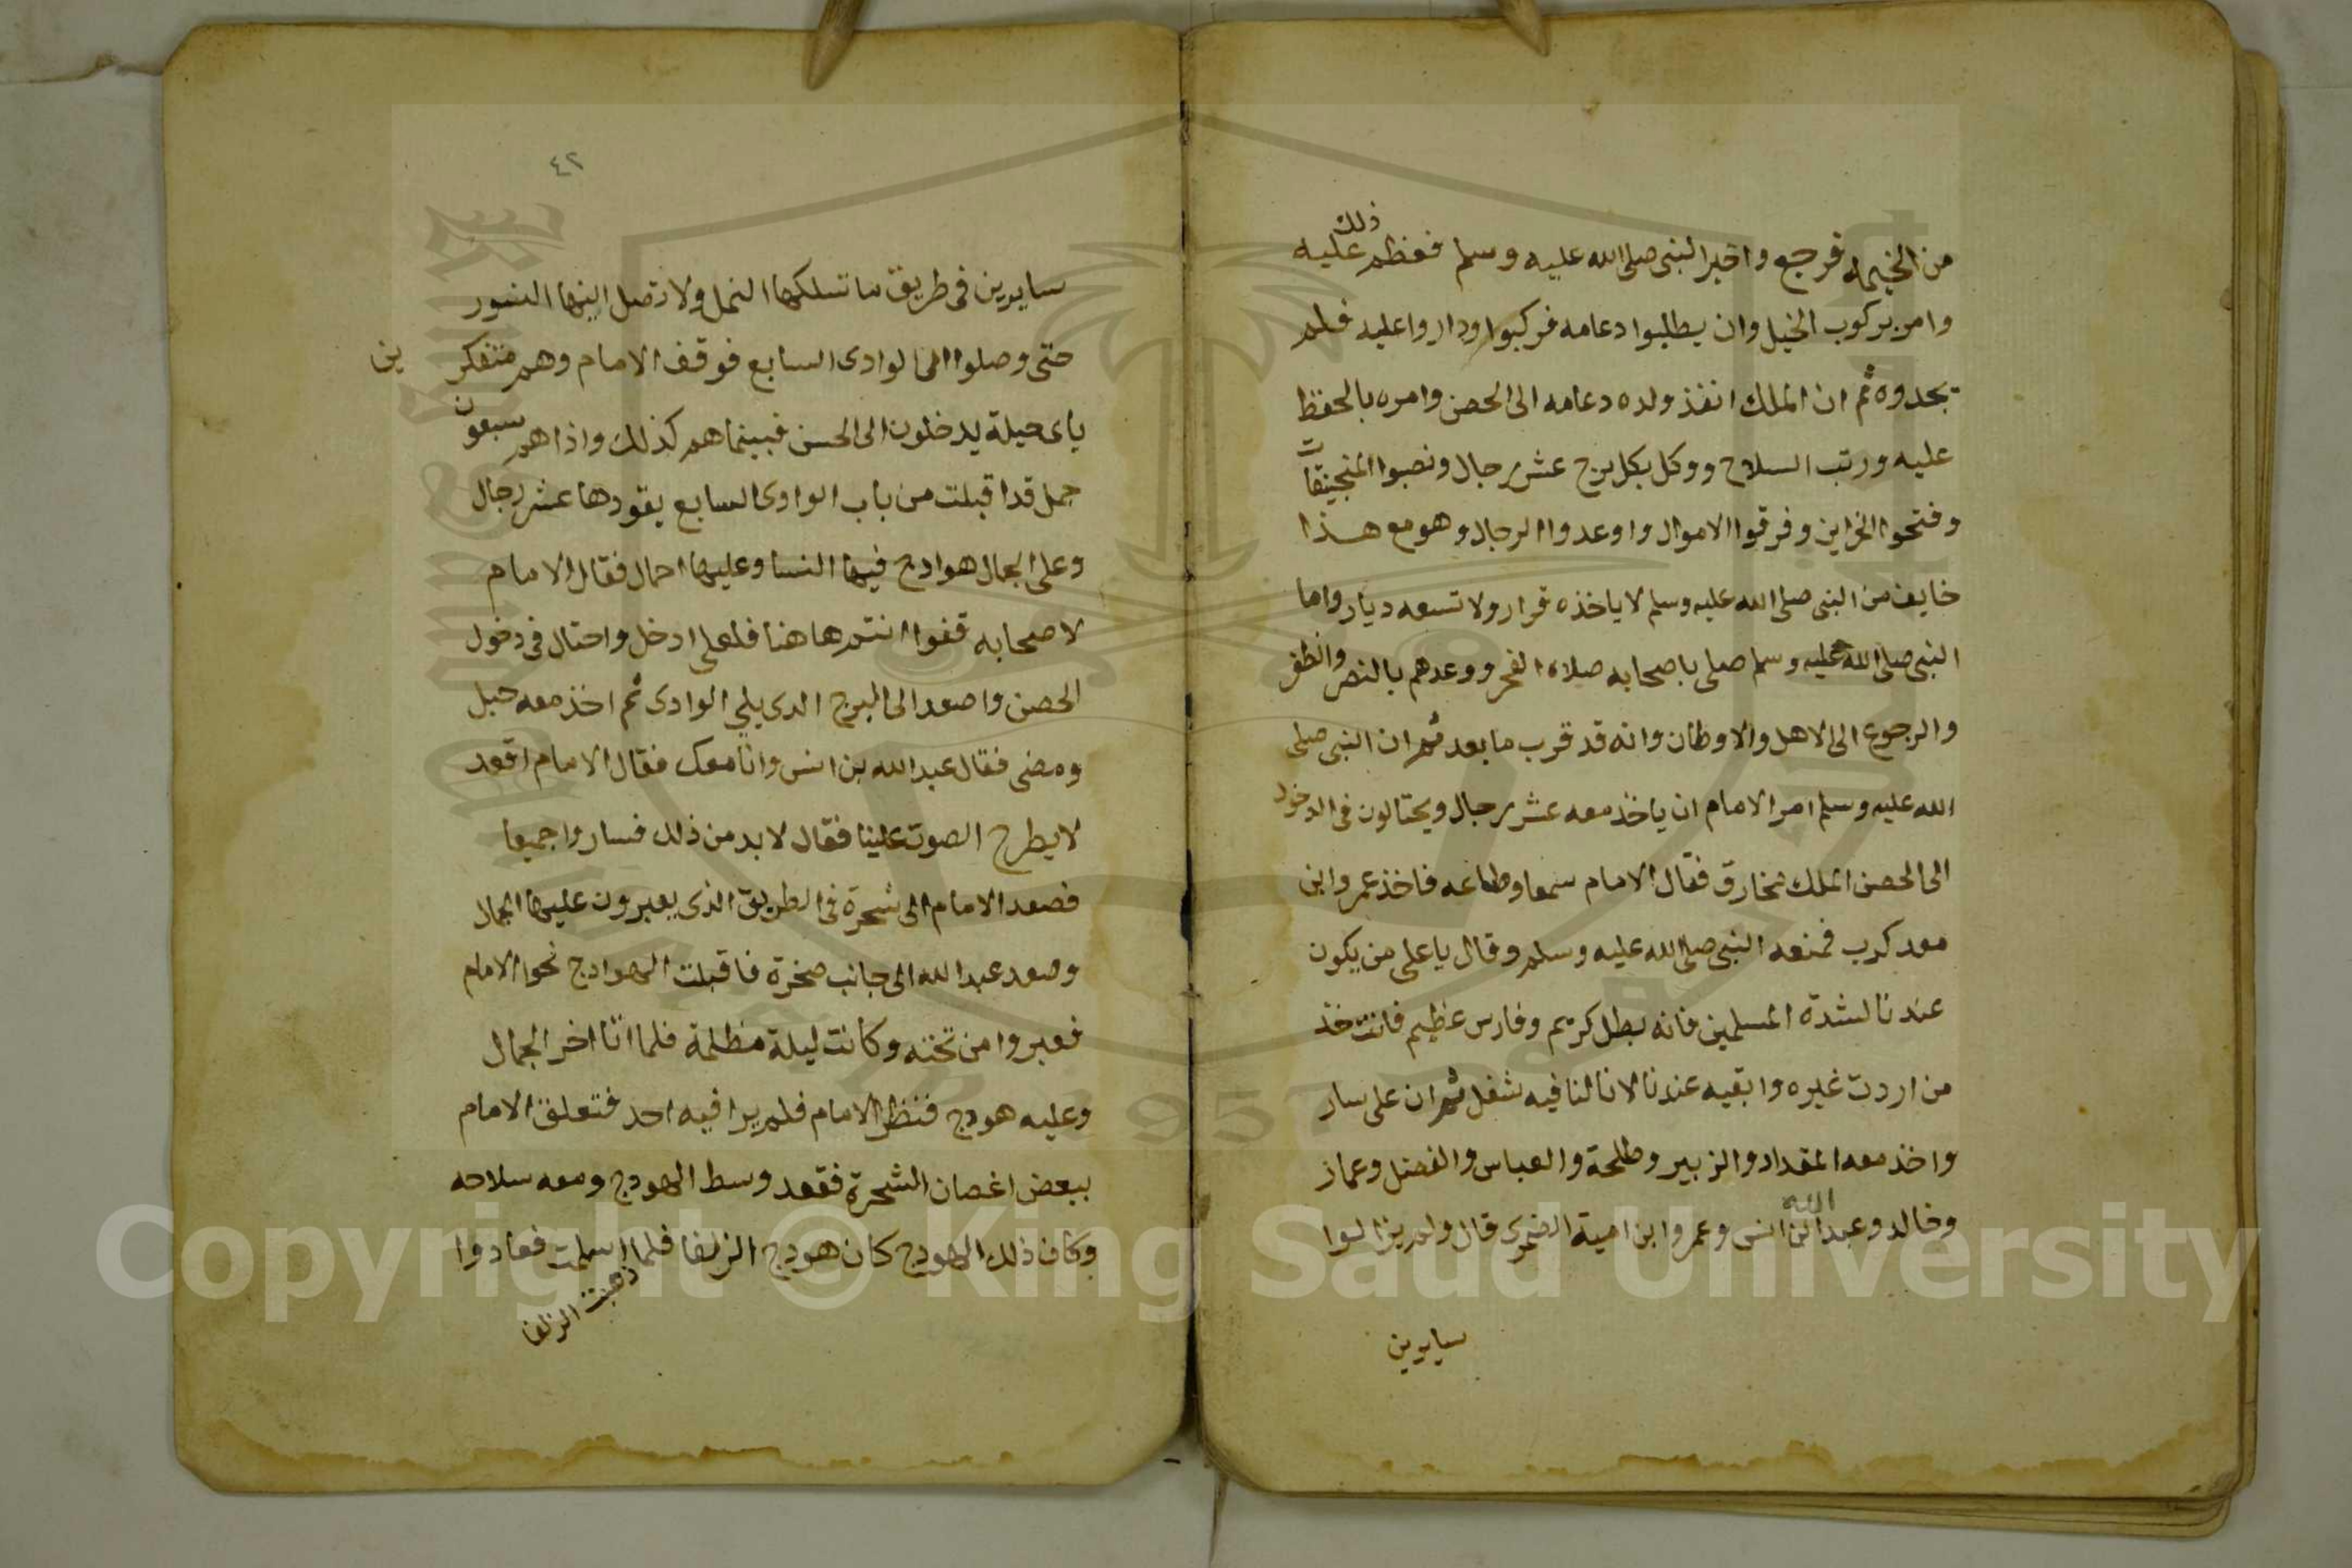 من الخيمه فرجع واخبر النبى صلى الله عليه وسلم فعظم ذلك عليه
وامر بركوب الخيل وان يطلبوا دعامه فركبوا وداروا عليه فلم
يجدوه ثم ان الملك انفذ ولده دعامه الى الحصن وامره بالحفظ
عليه ورتب السلاح ووكل بكل برج عشر رجال ونصبوا المنجنيقات
وفتحوا الخزاين وفرقوا الاموال واوعدوا الرجال وهو مع هذا
خايف من النبى صلى الله عليه وسلم لا ياخذه قرار ولا تسعه ديار واما
النبى صلى الله عليه وسلم صلى باصحابه صلاه الفجر ووعدهم بالنصر والظفر
والرجوع الى الاهل والاوطان وانه قد قرب ما بعد ثم ان النبى صلى
الله عليه وسلم امر الامام ان ياخذ معه عشر رجال ويحتالون فى الدخول
الى الحصن الملك مخارق فقال الامام سمعا وطاعه فاخذ عمرو ابن
معد كرب فمنعه النبى صلى الله عليه وسلم وقال يا على من يكون
عندنا لشدة المسلمين فانه بطل كريم وفارس عظيم فانت خذ
من اردت غيره وابقيه عندنا لانا لنا فيه شغل ثم ان على سار
واخذ معه المقداد والزبير وطلحة والعباس والفضل وعمار
وخالد وعبد الله ابن انس وعمرو ابن امية الضمرى قال ولم يزالوا
سايرين
٤٢
سايرين فى طريق ما تسلكها النمل ولا تصل اليها النسور
حتى وصلوا الى الوادى السابع فوقف الامام وهم متفكرين
باى حيلة يدخلون الى الحسن فبينما هم كذلك واذا هم سبعون
جمل قد اقبلت من باب الوادى السابع يقودها عشر رجال
وعلى الجمال هوادج فيها النسا وعليها احمال فقال الامام
لاصحابه قفوا انتم هاهنا فلعلى ادخل واحتال فى دخول
الحصن واصعد الى البرج الدى يلى الوادى ثم اخذ معه حبل
ومضى فقال عبد الله بن انس وانا معك فقال الامام اقعد
لا يطرح الصوت علينا فقال لا بد من ذلك فساروا جميعا
فصعد الامام الى شجرة فى الطريق الذى يعبرون عليها الجمال
وصعد عبد الله الى جانب صخرة فاقبلت الهوادج نحوا الامام
فعبروا من تحته وكانت ليلة مظلمة فلما اتا اخر الجمال
وعليه هودج فنظر الامام فلم يرا فيه احد فتعلق الامام
ببعض اغصان الشجرة فقعد وسط الهودج ومعه سلاحه
وكان ذلك الهودج كان هودج الزلفا فلما اسلمت فعادوا
ذهبت الزلفا
Copyright © King Saud University
1957